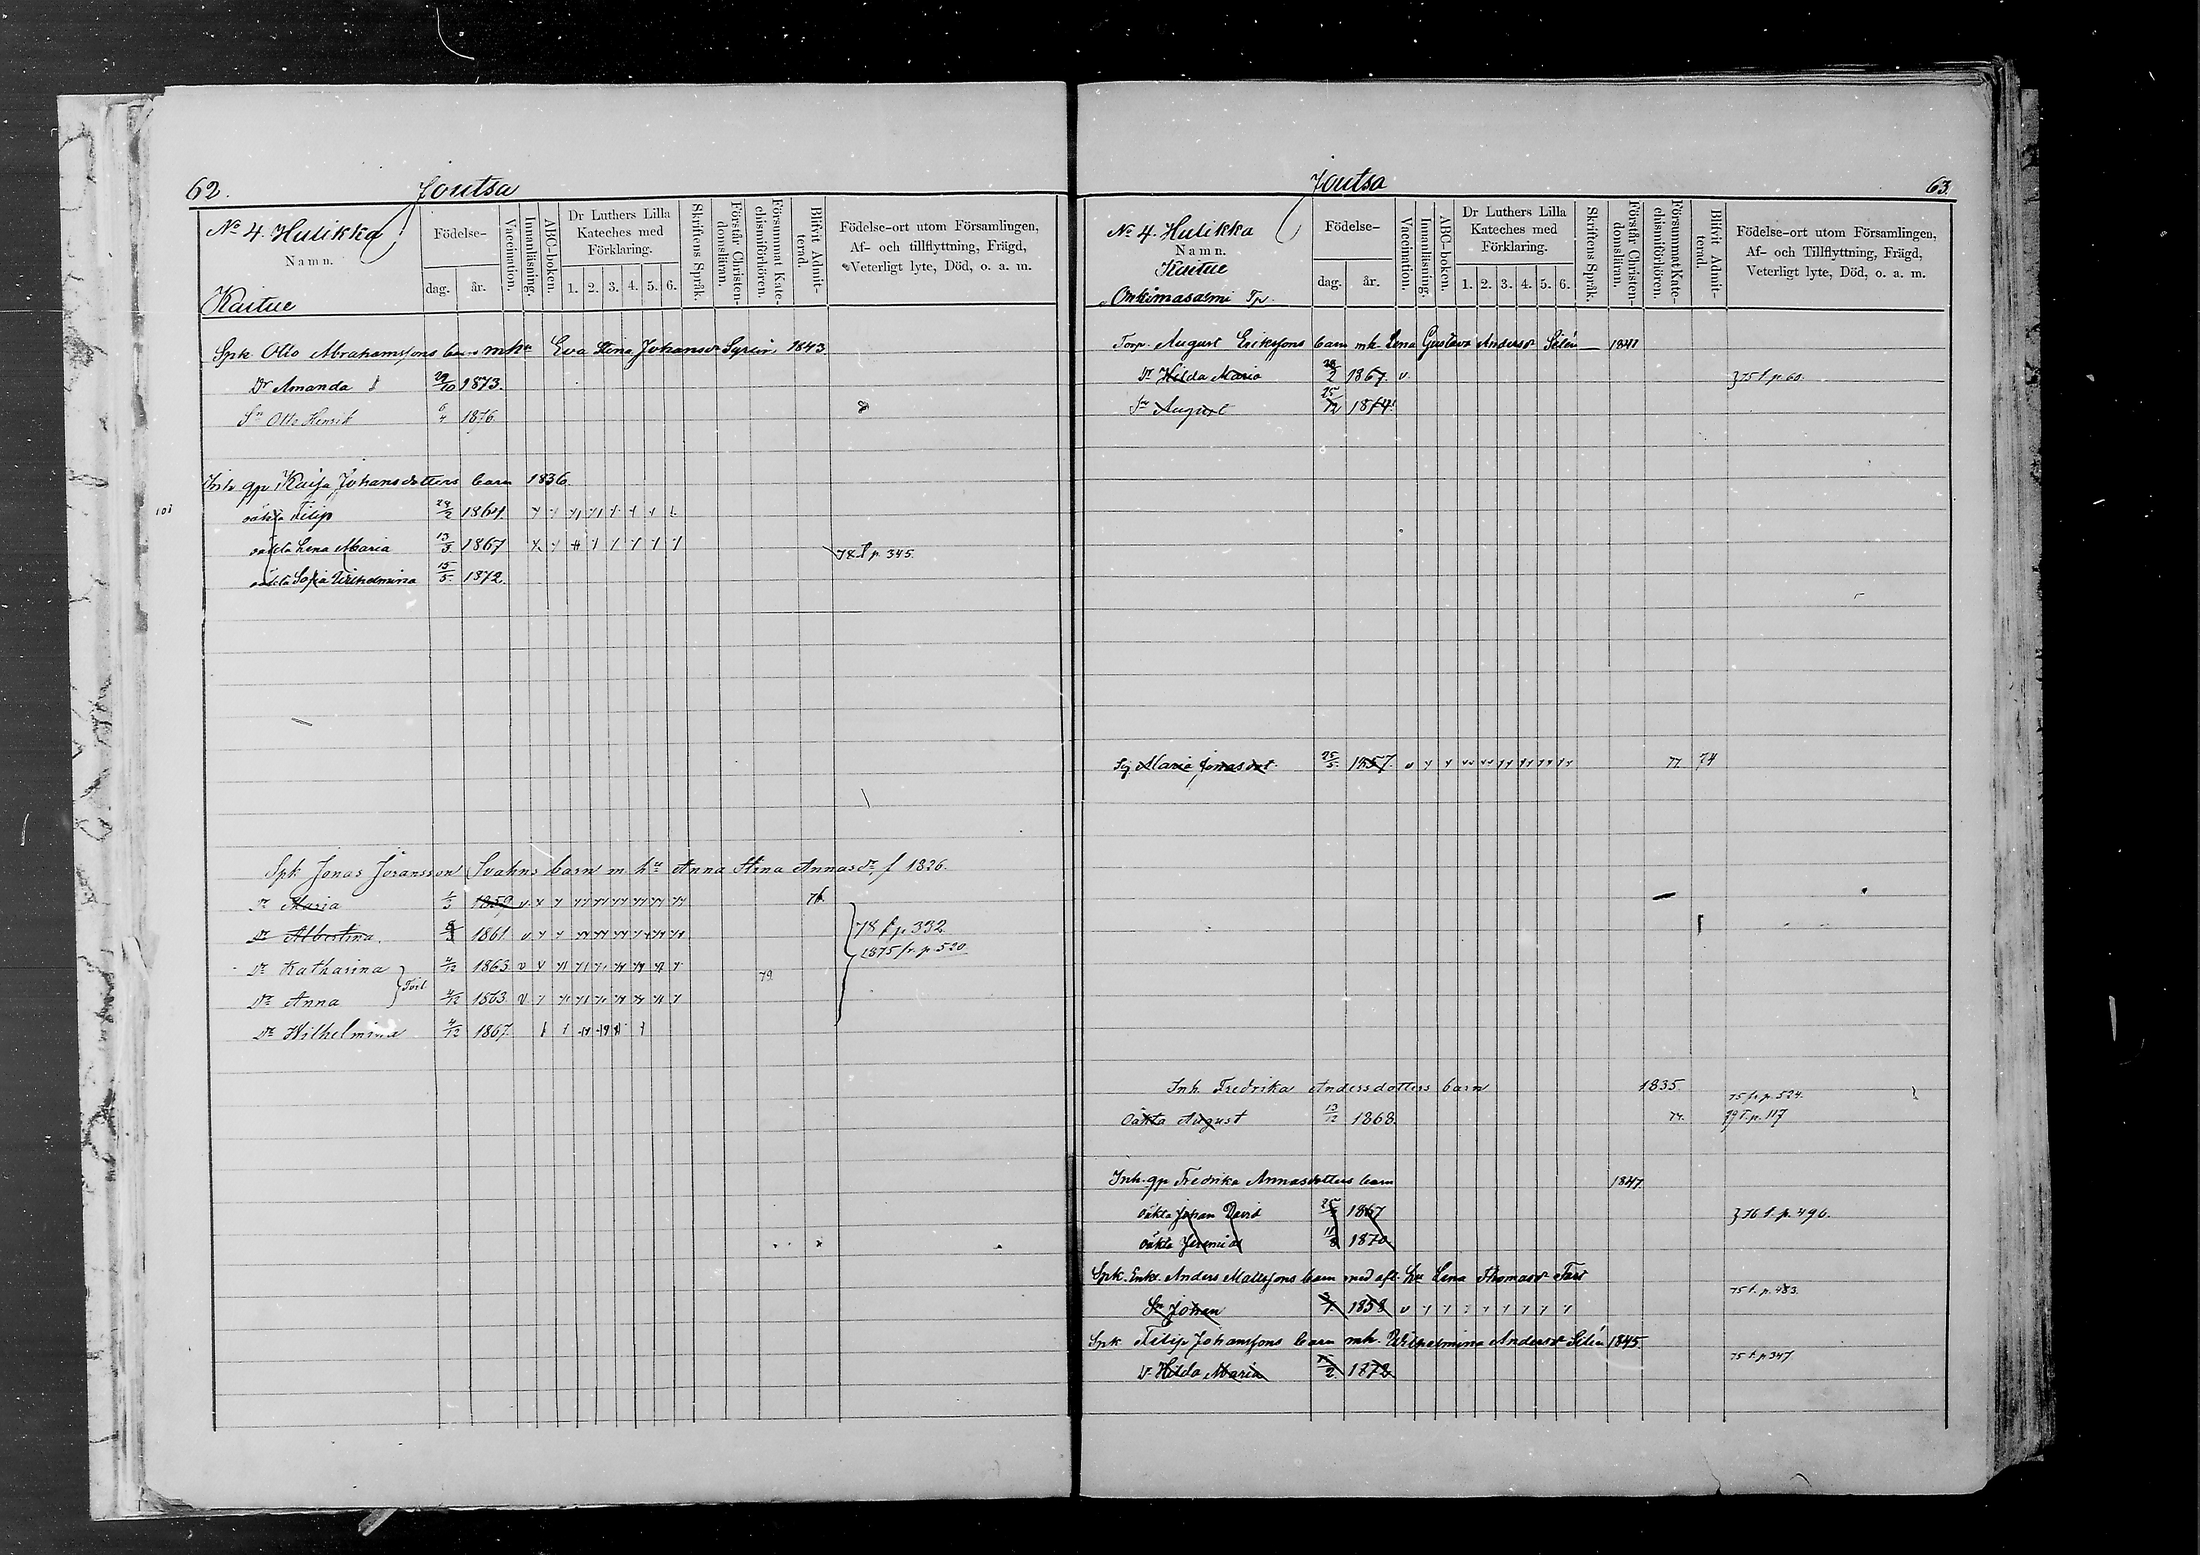 62.
Joutsa
No 4. Hulikka
Namn.
Kaitue
Födelse-
dag.
år.
Vaccination.
Innanläsning.
ABC-boken.
Dr Luthers Lilla
Kateches med
Förklaring.
1. 2. 3. 4. 5. 6.
Skriftens Språk.
Förstår Christen-
domsläran.
Försummat Kate-
chismiförhören.
Blifvit Admit-
terad.
Födelse-ort utom Församlingen,
Af- och tillflyttning, Frägd,
Veterligt lyte, Död, o. a. m.
Spk Otto Abrahamssons barn m hu Eva Stina Johansdr 1843.
Dr Amanda 29/10 1873.
Sn Otto Henrik 6/4 1876
Inh qp Kaisa Johansdotters barn 1836.
101
oäkta Filip 24/2 1861
oäkta Lena Maria 13/3 1867
78 f p. 345.
oäkta Sofia Wilhelmina 15/5 1872.
Spk Jonas Göransson Svahns barn m hu Anna Stina Annasdr f 1826.
Dr Maria 1/3 1859 v 76
Dr Albertina. 1861 v
78 f p. 332
1875 fr. p. 520
Dr Katharina 4/12 1863 v
Tvil.
79
Dr Anna 4/12 1863 v
Dr Wilhelmina 4/12 1867.
Joutsa
63.
No 4. Hulikka
Namn.
Kaitue
Onkimasalmi Tp.
Födelse-
dag.
år.
Vaccination.
Innanläsning.
ABC-boken.
Dr Luthers Lilla
Kateches med
Förklaring.
1. 2. 3. 4. 5. 6.
Skriftens Språk.
Förstår Christen-
domsläran.
Försummat Kate-
chismiförhören.
Blifvit Admit-
terad.
Födelse-ort utom Församlingen,
Af- och Tillflyttning, Frägd,
Veterligt lyte, Död, o. a. m.
Torp. August Erikssons barn mh. Lena Gustava Andersdr Silén 1841
Dr Hilda Maria 1867. v.
} 75 f. p. 60.
Sn August 25/12 1874
Pig Maria Jonasdot. 25/5 1857. v 77. 74
Inh. Fredrika Andersdotters barn 1835.
75 fr. p. 524.
Oäkta August 13/12 1868. 74.
79 T. p. 117
Inh. qp Fredrika Annasdotters barn 1847.
oäkta Johan David 1867
} 76 f. p. 496.
oäkta Jeremias 11/8 1870
Spk. Enkl. Anders Mattssons barn med afl. hu Lena Thomasdr
75 f. p. 483.
Sn Johan 1858 v
Spk Filip Johanssons barn mh. Wilhelmina Andersdr Silén 1845.
75 f. p 347
Dr Hilda Maria 1872